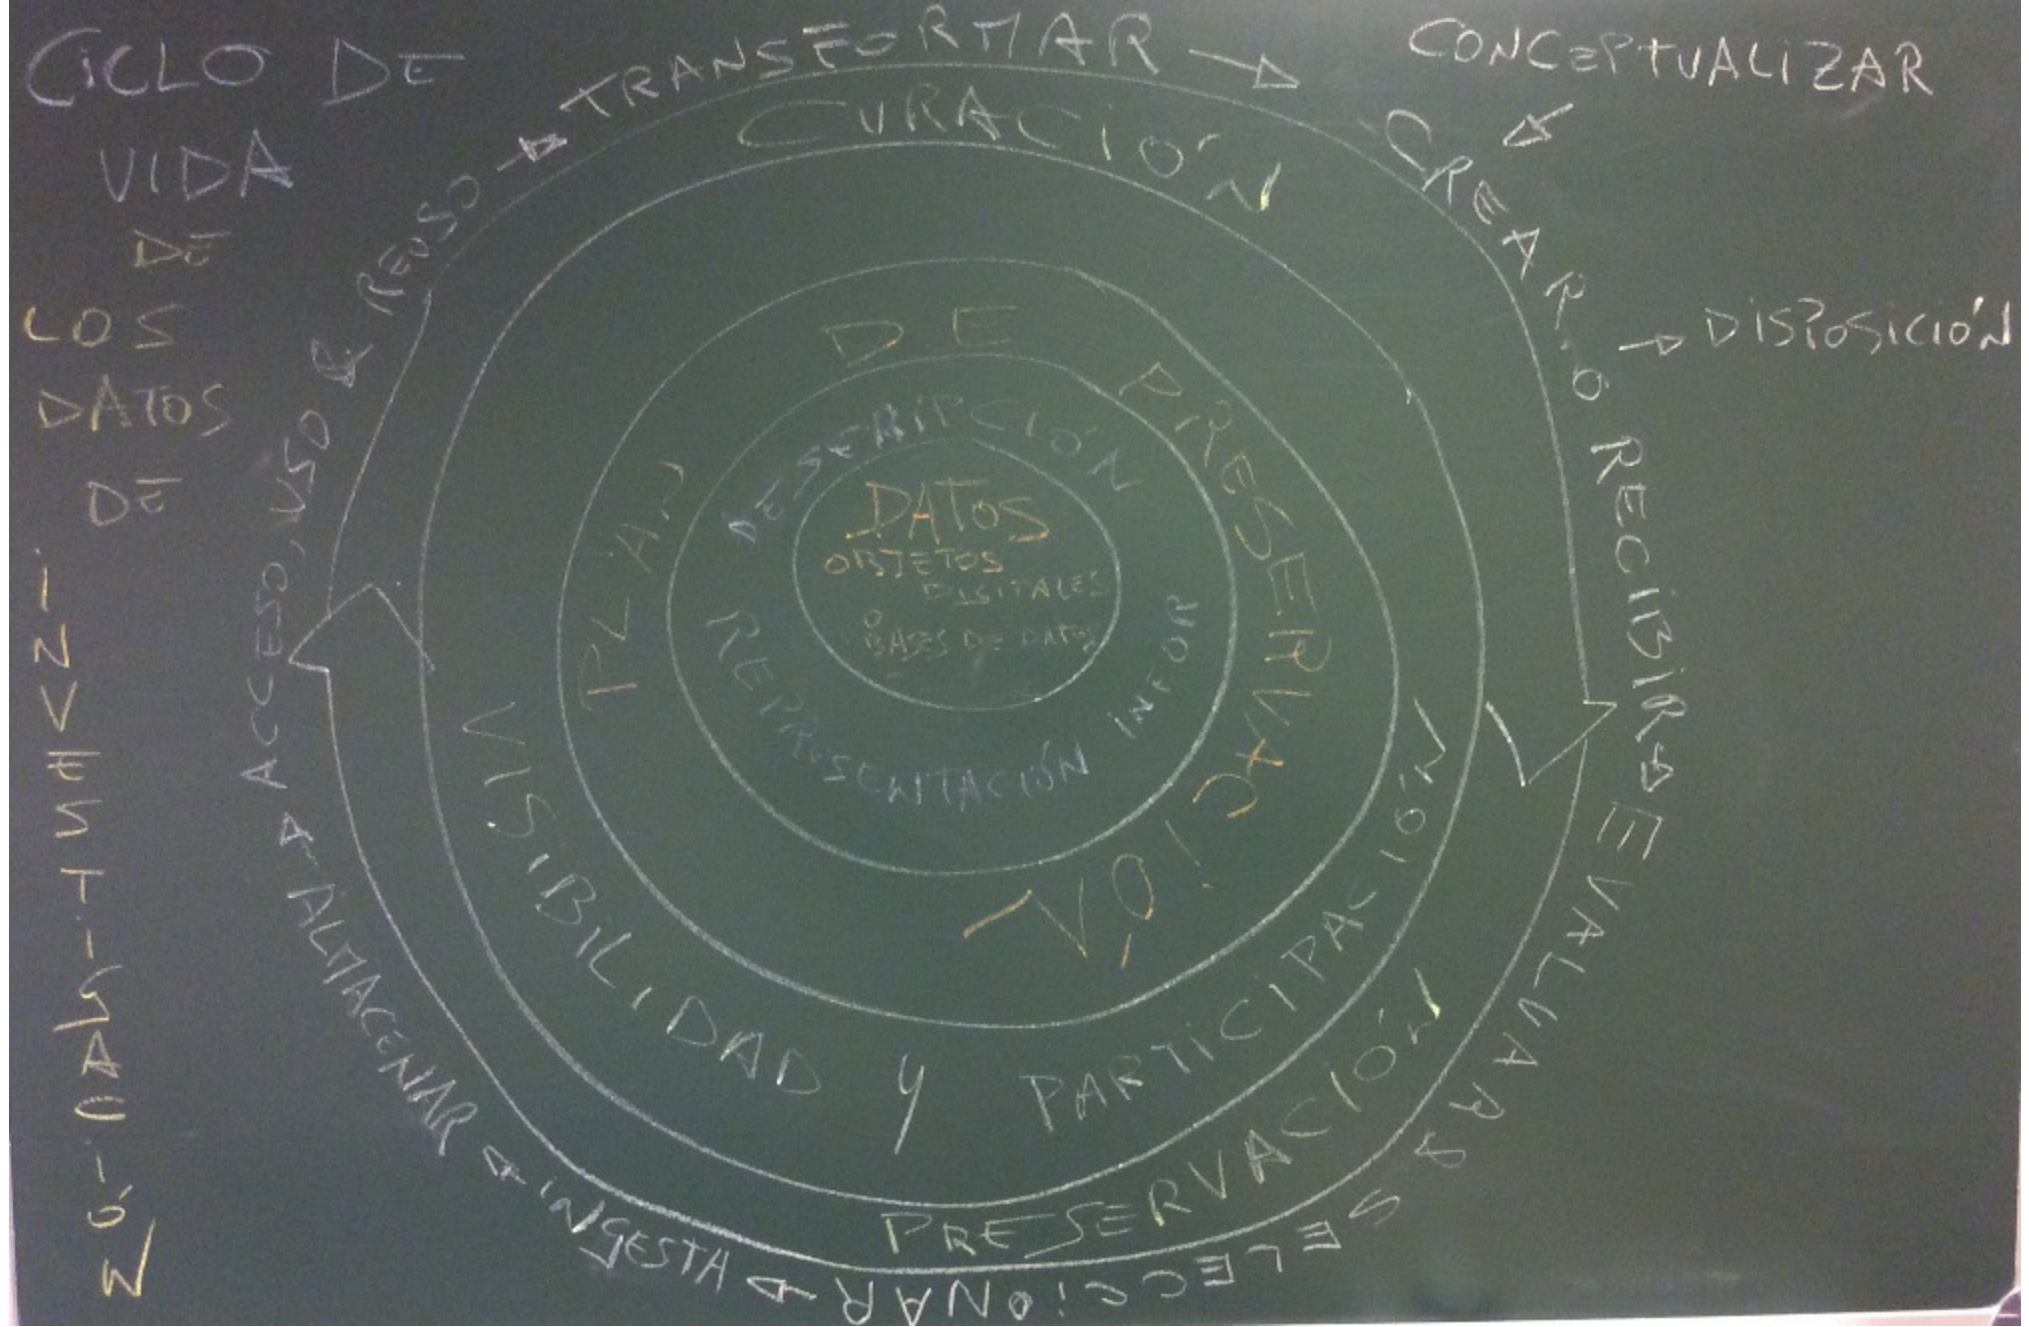 CICLO DE
VIDA
DE
LOS
DATOS
DE
INVESTIGACIÓN
TRANSFORMAR →
CONCEPTUALIZAR
CREAR O RECIBIR →
→ DISPOSICIÓN
EVALUAR &
SELECCIONAR →
INGESTA →
ALMACENAR →
ACCESO, USO & REUSO →
CURACIÓN
PRESERVACIÓN
VISIBILIDAD Y PARTICIPACIÓN
PLAN DE PRESERVACIÓN
DESCRIPCIÓN
REPRSENTACIÓN INFOR
DATOS
OBJETOS
DIGITALES
O
BASES DE DATOS